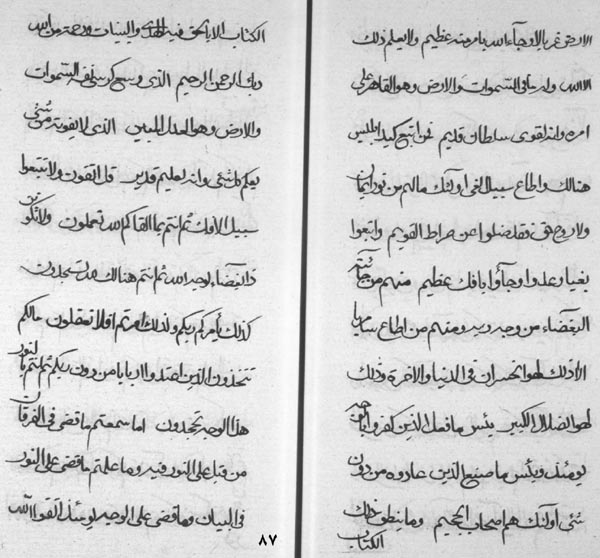 الارض غربالا وجاءالله بامر منه عظيم ولا يعلم ذلك
الا الله وله ما فى السموات والارض وهو القاهر على
امره وانه لقوى سلطان قديم فمن اتبع كيد ابليس
هنالك واطاع سبيل الغى اولئك مالهم من نور ايمان
ولا روح تقى فقد ضلوا عن صراط القويم واتبعوا
بغيا وعدوا وجاؤا بافك عظيم منهم من جائته
البغضاء من وجه ربه ومنهم من اطاع
الا ذلك لهو الخسران فى الدنيا والاخرة وذلك
لهو الضلال الكبير بئس ما فعل الذين كفروا
يومئذ وبئس ما صنيع الذين عادوه من دون
شئى اولئك هم اصحاب الجحيم وما ينطق ذلك
الكتاب
الكتاب الا بالحق فيه الهدى والبينات ورحمة من الله
ربك الرحمن الرحيم الذى وسع كرسى نفسه السموات
والارض وهو العدل المبين الذى لا يفوته من شئى
يعلم كل شئى وانه لعليم قدير قل اتقون ولا تتبعوا
سبيل الافك ثم انتم بما القاكم الله تعملون ولا تكونن
ذا البغضاء لوجه الله ثم انتم هنالك لله تسجدون
كذلك يأمركم ربكم ولذلك امرتم افلا تعقلون مالكم
تتخذون الذين اعتدوا اربابا من دون ربكم ثم انتم بالنور
هذا الوجه تجحدون اما سمعتم ما قضى فى الفرقان
من قبل على النور فيه وما علمتم ما قضى على النور
فى البيان وما قضى على الوجه يومئذ اتقوا الله
٨٧